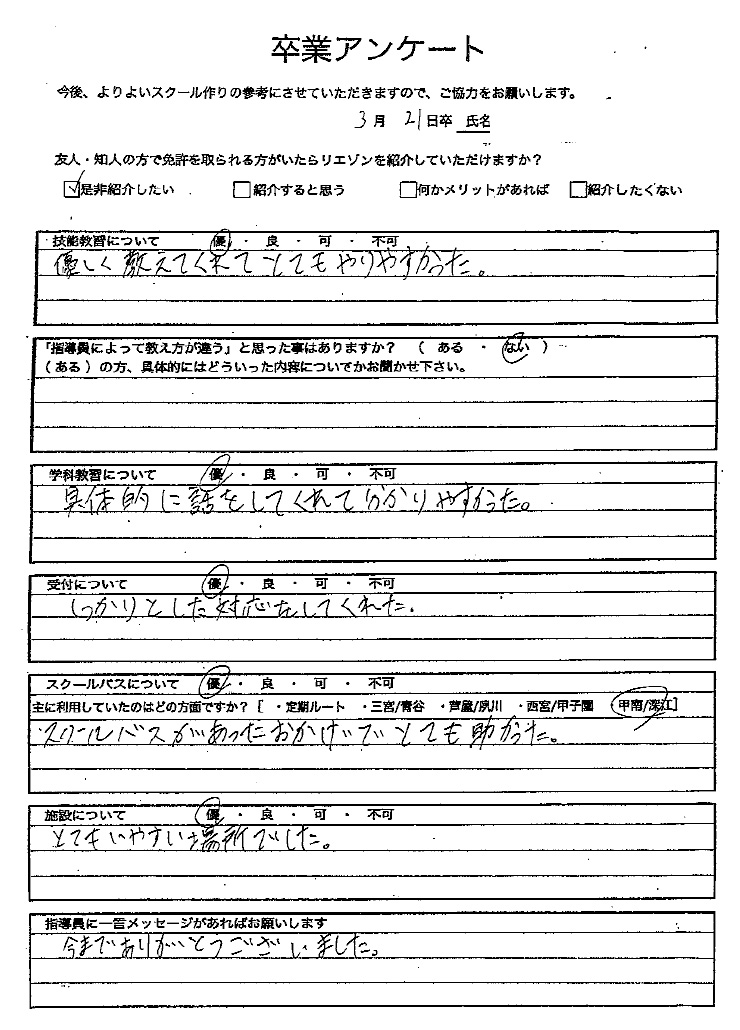 卒業アンケート
今後、よりよいスクール作りの参考にさせていただきますので、ご協力をお願いします。
3月 21日卒 氏名
友人・知人の方で免許を取られる方がいたらリエゾンを紹介していただけますか？
☑是非紹介したい □紹介すると思う □何かメリットがあれば □紹介したくない
技能教習について 優 ・ 良 ・ 可 ・ 不可
優しく教えてくれてとてもやりやすかった。
「指導員によって教え方が違う」と思った事はありますか？ （ ある ・ ない ）
（ある）の方、具体的にはどういった内容についてかお聞かせ下さい。
学科教習について 優 ・ 良 ・ 可 ・ 不可
具体的に話をしてくれて分かりやすかった。
受付について 優 ・ 良 ・ 可 ・ 不可
しっかりとした対応をしてくれた.
スクールバスについて 優 ・ 良 ・ 可 ・ 不可
主に利用していたのはどの方面ですか？［ ・定期ルート ・三宮/青谷 ・芦屋/夙川 ・西宮/甲子園 甲南/深江］
スクールバスがあったおかげでとても助かった。
施設について 優 ・ 良 ・ 可 ・ 不可
とてもいやすい場所でした。
指導員に一言メッセージがあればお願いします
今までありがとうございました。